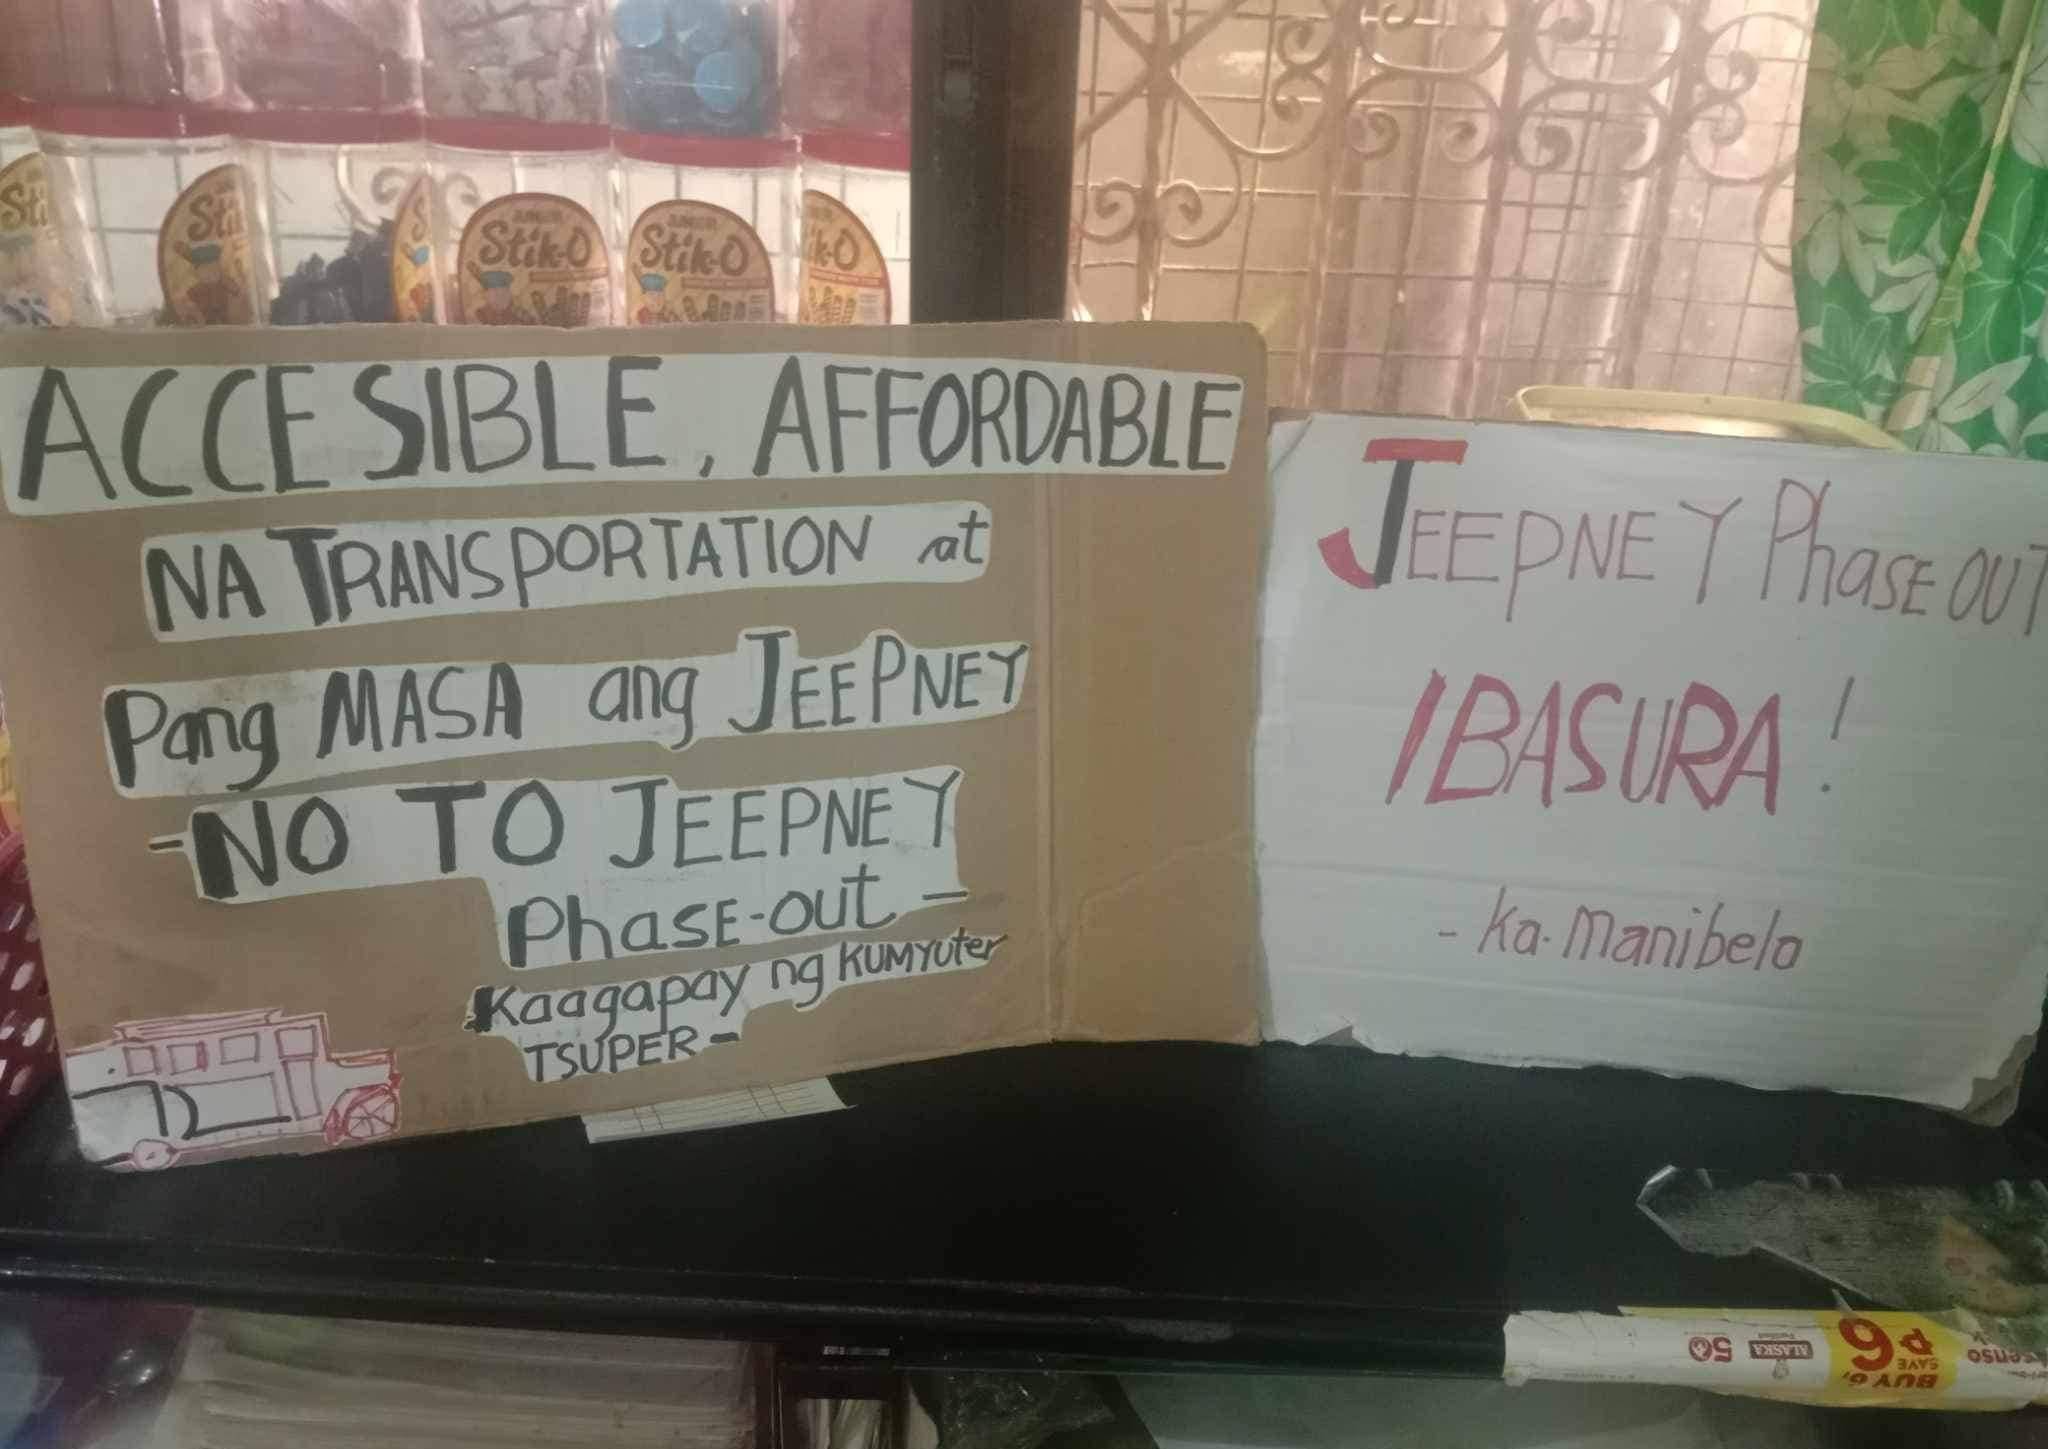 Stik-O
Stik-O
ACCESIBLE, AFFORDABLE
NA TRANSPORTATION at
Pang MASA ang JEEPNEY
-NO TO JEEPNEY
PhasE-out-
Kaagapay ng KUMYuter
TSUPER-
JEEPNEY PhasE OUT
IBASURA!
- Ka. Manibela
BUY 6,
SAVE
₱6
ALASKA
50